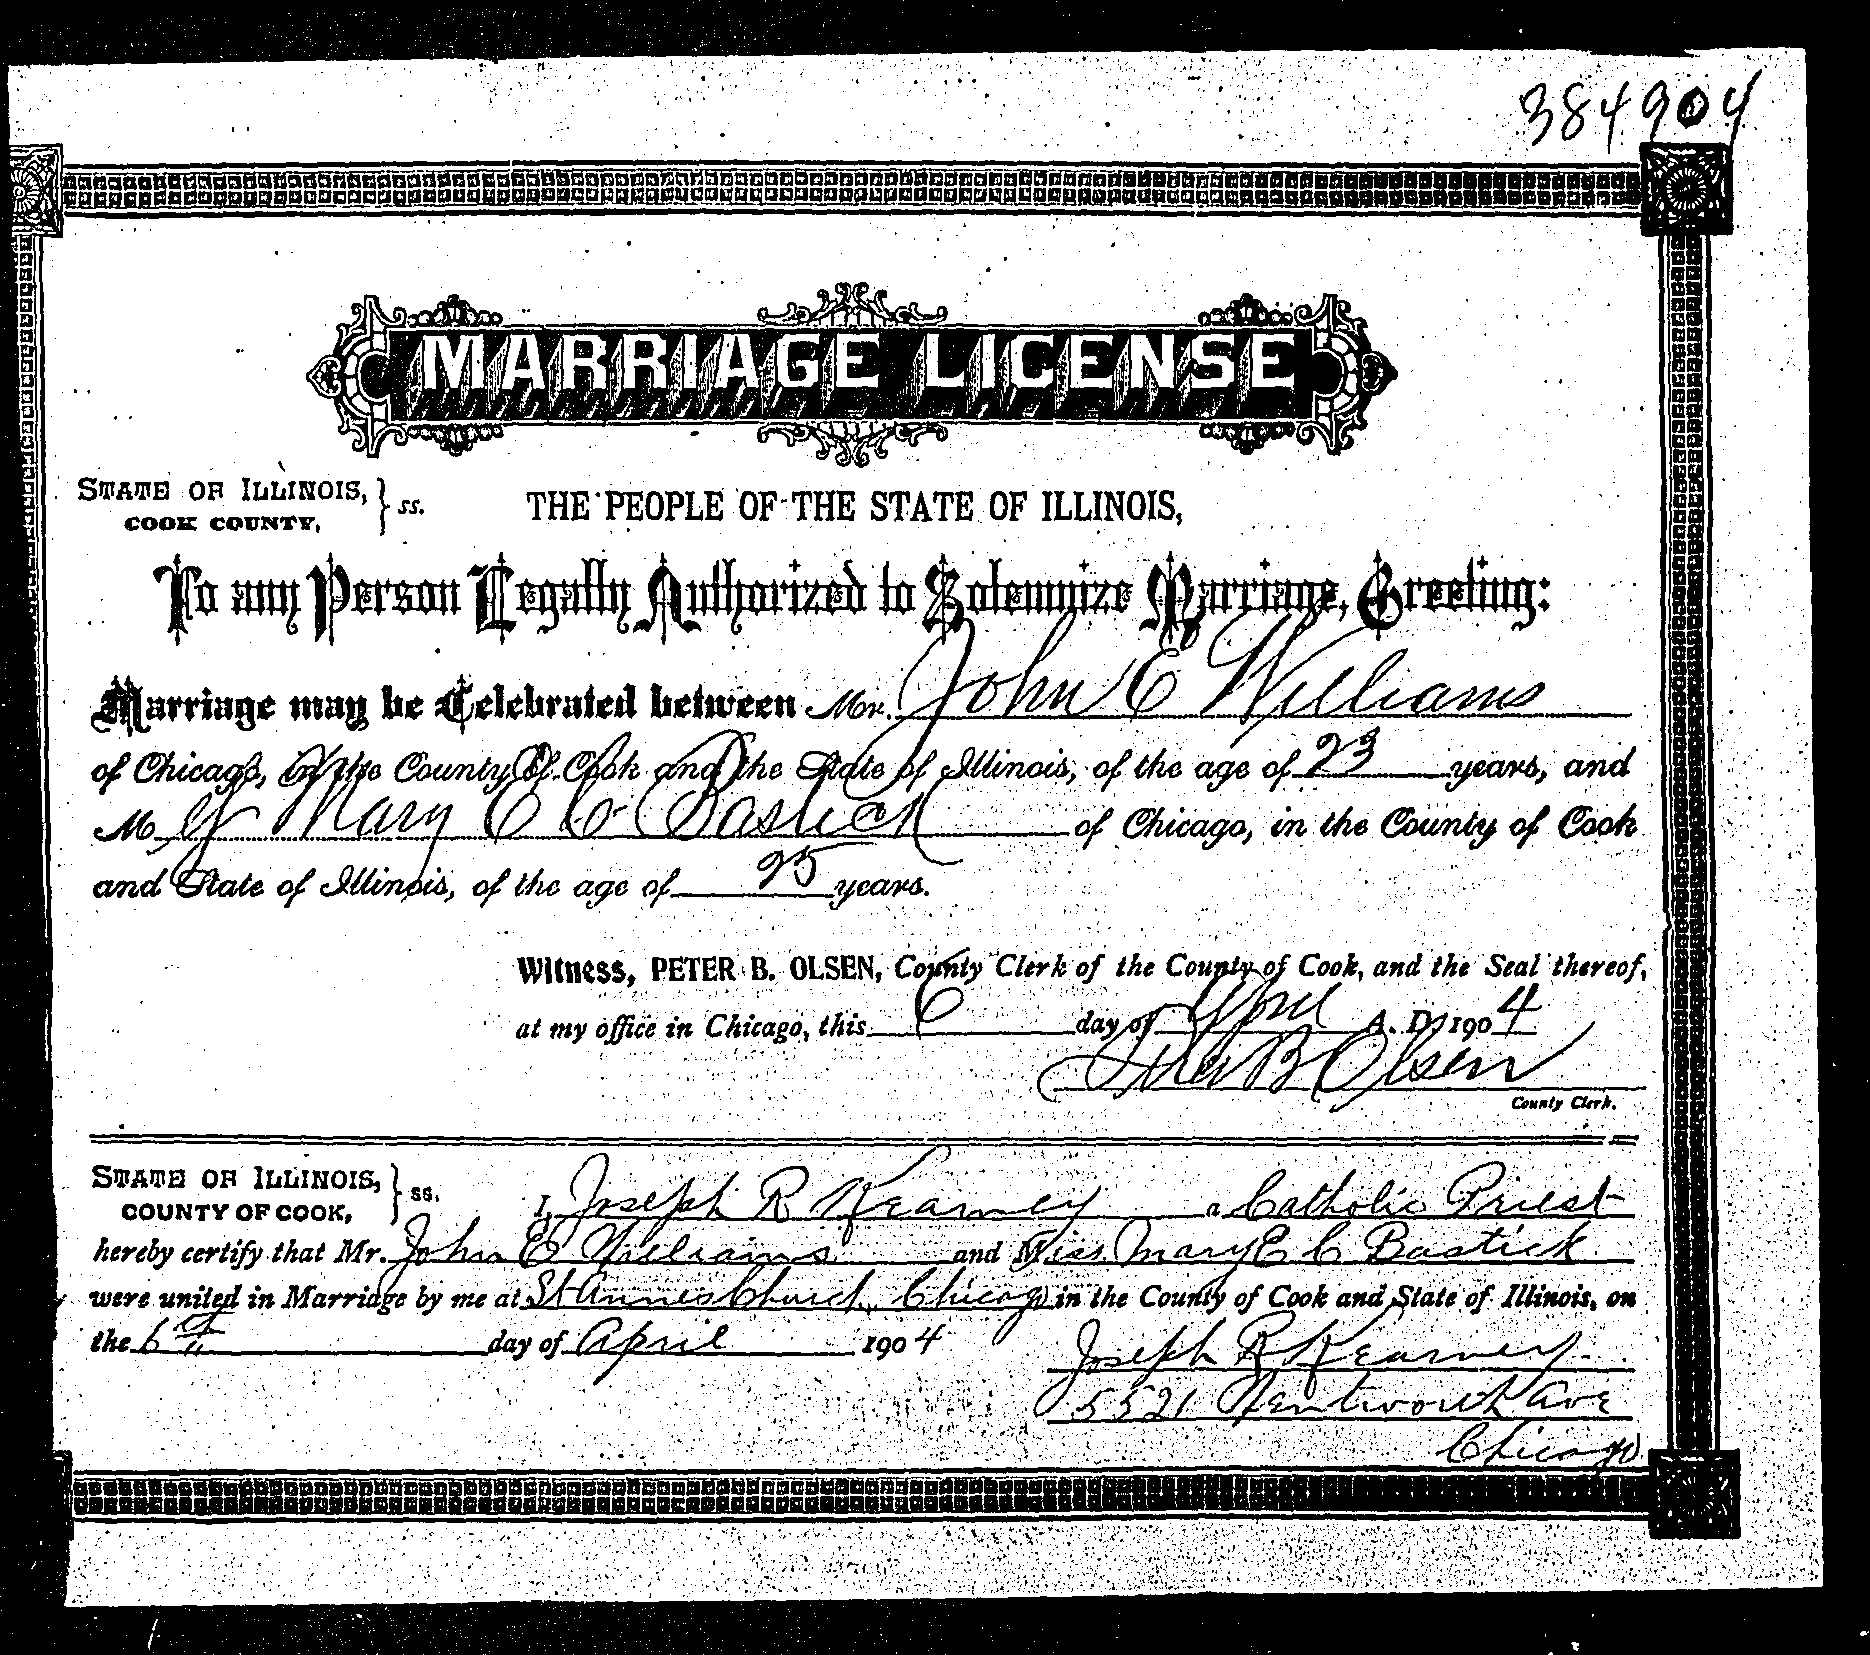 384904
MARRIAGE LICENSE
STATE OF ILLINOIS, } ss. THE PEOPLE OF THE STATE OF ILLINOIS,
COOK COUNTY,
To any Person Legally Authorized to Solemnize Marriage, Greeting:
Marriage may be Celebrated between Mr. John E Williams
of Chicago, in the County of Cook and the State of Illinois, of the age of 23 years, and
M Mary E C Bastick of Chicago, in the County of Cook
and State of Illinois, of the age of 25 years.
Witness, PETER B. OLSEN, County Clerk of the County of Cook, and the Seal thereof,
at my office in Chicago, this 6 day of April A. D. 1904
Peter B Olsen
County Clerk.
STATE OF ILLINOIS, } ss. I, Joseph R Kearney a Catholic Priest
COUNTY OF COOK,
hereby certify that Mr. John E Williams and Miss Mary E C Bastick
were united in Marriage by me at St Annes Church, Chicago in the County of Cook and State of Illinois, on
the 6th day of April 1904 Joseph R Kearney.
5521 Wentworth Ave
Chicago